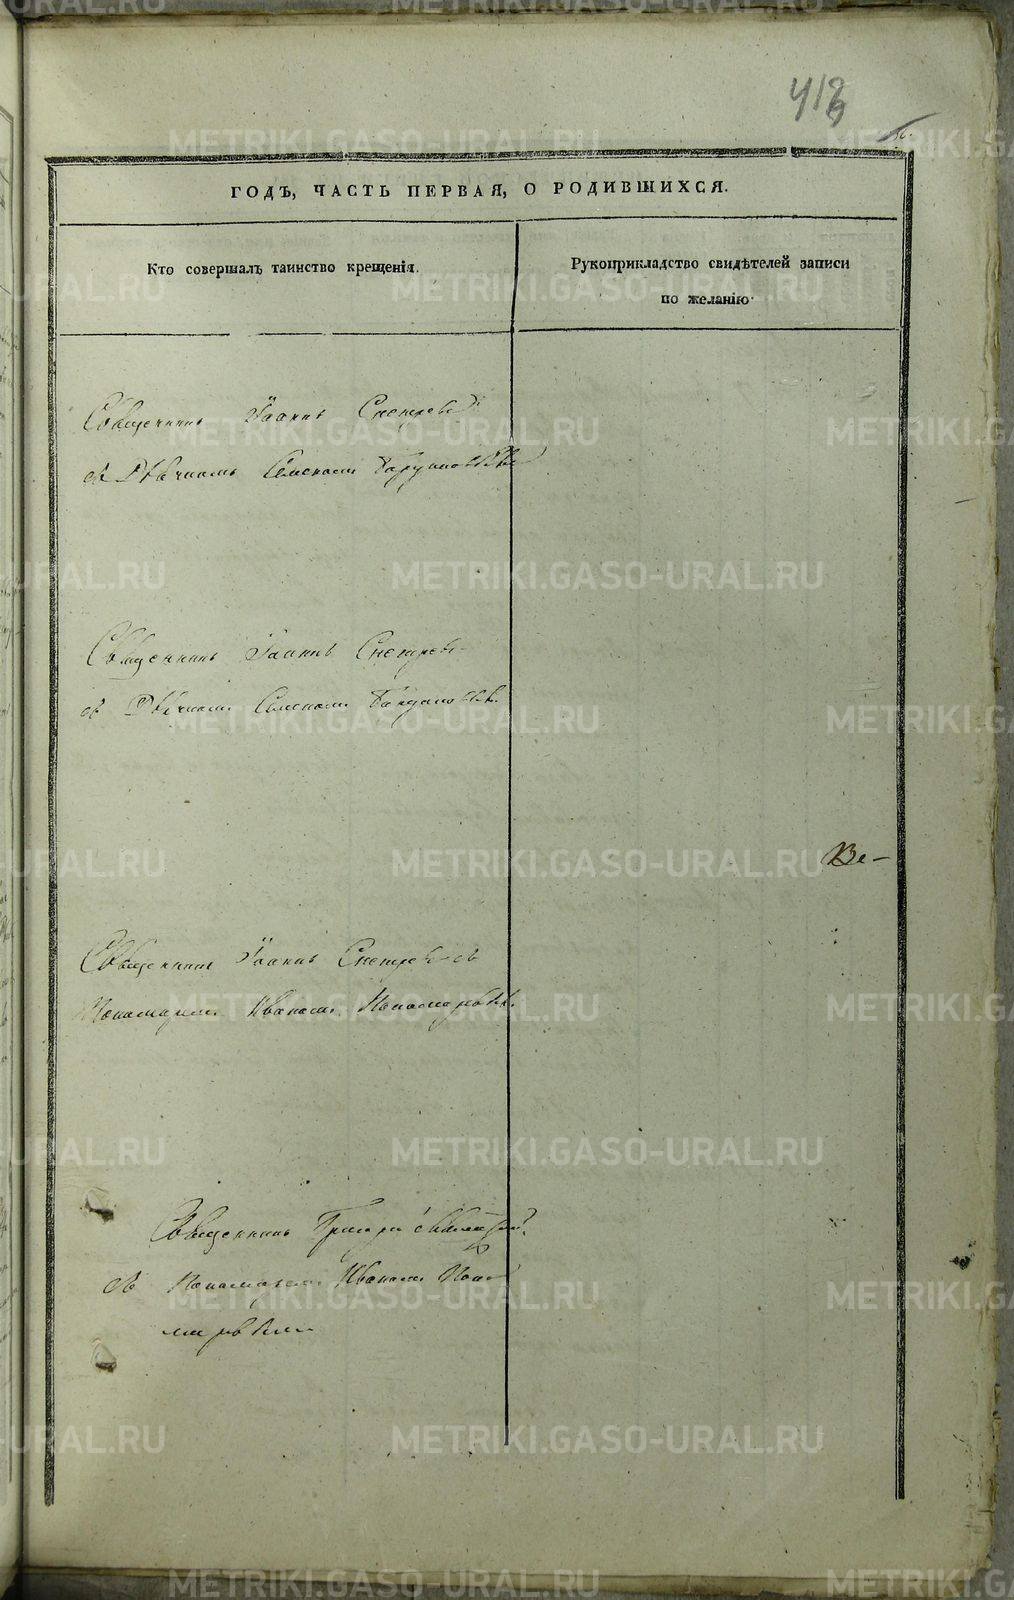 418
ГОДЪ, ЧАСТЬ ПЕРВАЯ, О РОДИВШИХСЯ.
Кто совершалъ таинство крещенія.
Рукоприкладство свидѣтелей записи
по желанію
Священникъ Іоаннъ
съ Дьячкомъ Семеномъ
Священникъ Іоаннъ
съ Дьячкомъ Семеномъ
Ве-
Священникъ Іоаннъ съ
Пономаремъ Иваномъ Пономаревымъ
Священникъ Григорій
съ Пономаремъ Иваномъ Поно
маревымъ
METRIKI.GASO-URAL.RU